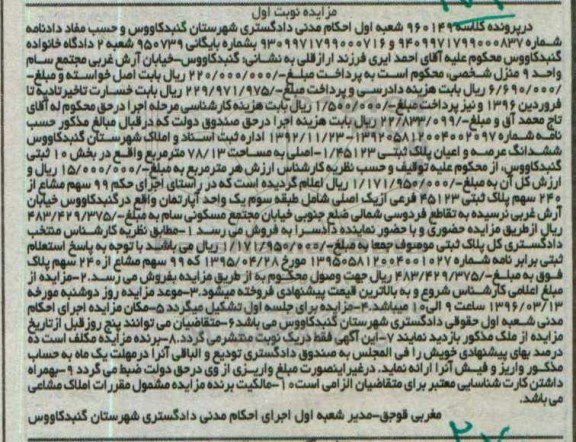 مزایده نوبت اول
درپرونده کلاسه ۹۶۰۱۴۹ شعبه اول احکام مدنی دادگستری شهرستان گنبدکاووس و حسب مفاد دادنامه
شماره ۹۴۰۹۹۷۱۷۹۹۰۰۰۸۳۷ و ۹۳۰۹۹۷۱۷۹۹۰۰۰۷۱۶ بشماره بایگانی ۹۵۰۷۳۹ شعبه ۲ دادگاه خانواده
گنبدکاووس محکوم علیه آقای احمد ایری فرزند ارازقلی به نشانی: گنبدکاووس-خیابان آرش غربی مجتمع سام
واحد ۹ منزل شخصی، محکوم است به پرداخت مبلغ-/۲۲۰/۰۰۰/۰۰۰ ریال بابت اصل خواسته و مبلغ-
/۶/۶۹۰/۰۰۰ ریال بابت هزینه دادرسی و پرداخت مبلغ-/۲۲۹/۹۷۱/۹۷۵ ریال بابت خسارت تاخیرتادیه تا
فروردین ۱۳۹۶ و نیز پرداخت مبلغ-/۱/۵۰۰/۰۰۰ ریال بابت هزینه کارشناسی مرحله اجرا درحق محکوم له آقای
تاج محمد آق و مبلغ-/۲۲/۸۳۳/۰۹۹ ریال بابت هزینه اجرا درحق صندوق دولت که درقبال مبالغ مذکور حسب
نامه شماره ۱۳۹۲۰۵۸۱۲۰۰۴۰۰۲۰۹۷-۱۳۹۲/۱۱/۲۳ اداره ثبت اسناد و املاک شهرستان گنبدکاووس
ششدانگ عرصه و اعیان پلاک ثبتی ۱/۴۵۱۲۳-اصلی به مساحت ۷۸/۱۳ مترمربع واقع در بخش ۱۰ ثبتی
گنبدکاووس، از محکوم علیه توقیف و حسب نظریه کارشناس ارزش هر مترمربع به مبلغ-/۱۵/۰۰۰/۰۰۰ ریال و
ارزش کل آن به مبلغ-/۱/۱۷۱/۹۵۰/۰۰۰ ریال اعلام گردیده است که در راستای اجرای حکم ۹۹ سهم مشاع از
۲۴۰ سهم پلاک ثبتی ۴۵۱۲۳ فرعی ازیک اصلی شامل طبقه سوم یک واحد آپارتمان واقع درگنبدکاووس خیابان
آرش غربی نرسیده به تقاطع فردوسی شمالی ضلع جنوبی خیابان مجتمع مسکونی سام به مبلغ-/۴۸۳/۴۲۹/۳۷۵
ریال ازطریق مزایده حضوری و با حضور نماینده دادسرا به فروش می رسد ۱-مطابق نظریه کارشناس منتخب
دادگستری کل پلاک ثبتی موصوف جمعا به مبلغ-/۱/۱۷۱/۹۵۰/۰۰۰ ریال می باشد با توجه به پاسخ استعلام
ثبتی برابر نامه شماره ۱۳۹۵۰۵۸۱۲۰۰۴۰۰۱۰۲۷ مورخ ۱۳۹۵/۰۴/۲۸ که ۹۹ سهم مشاع از ۲۴۰ سهم پلاک
فوق به مبلغ-/۴۸۳/۴۲۹/۳۷۵ ریال جهت وصول محکوم به از طریق مزایده بفروش می رسد.۲-مزایده از
مبلغ اعلامی کارشناس شروع و به بالاترین قیمت پیشنهادی فروخته میشود.۳-موعد مزایده روز دوشنبه مورخه
۱۳۹۶/۰۳/۱۳ ساعت ۹ الی ۱۰ میباشد.۴-مزایده برای جلسه اول تشکیل میگردد ۵-مکان مزایده اجرای احکام
مدنی شعبه اول حقوقی دادگستری شهرستان گنبدکاووس می باشد ۶-متقاضیان می توانند پنج روز قبل ازتاریخ
مزایده از ملک مذکور بازدید نمایند ۷-این آگهی فقط دریک نوبت منتشر می گردد.۸-برنده مزایده مکلف است ده
درصد بهای پیشنهادی خویش را فی المجلس به صندوق دادگستری تودیع و الباقی آنرا درمهلت یک ماه به حساب
مذکور واریز و فیش آنرا ارائه نماید. درغیر اینصورت مبلغ واریزی از وی درحق دولت ضبط می گردد ۹-بهمراه
داشتن کارت شناسایی معتبر برای متقاضیان الزامی است ۱۰-مالکیت برنده مزایده مشمول مقررات املاک مشاعی
می باشد.
مغربی قوجق-مدیر شعبه اول اجرای احکام مدنی دادگستری شهرستان گنبدکاووس